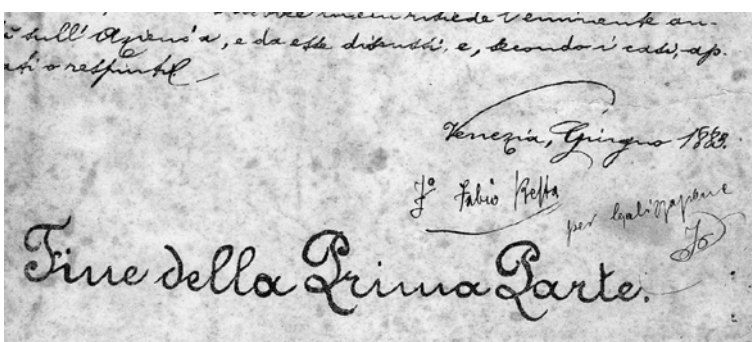 risiede l'eminente an-
sull' Agenzia, e da esse discussi, e, secondo i casi, ap-
ati o respinti.
Venezia, Giugno 1883.
Fº Fabio Besta
per legalizzazione
Fine della Prima Parte.